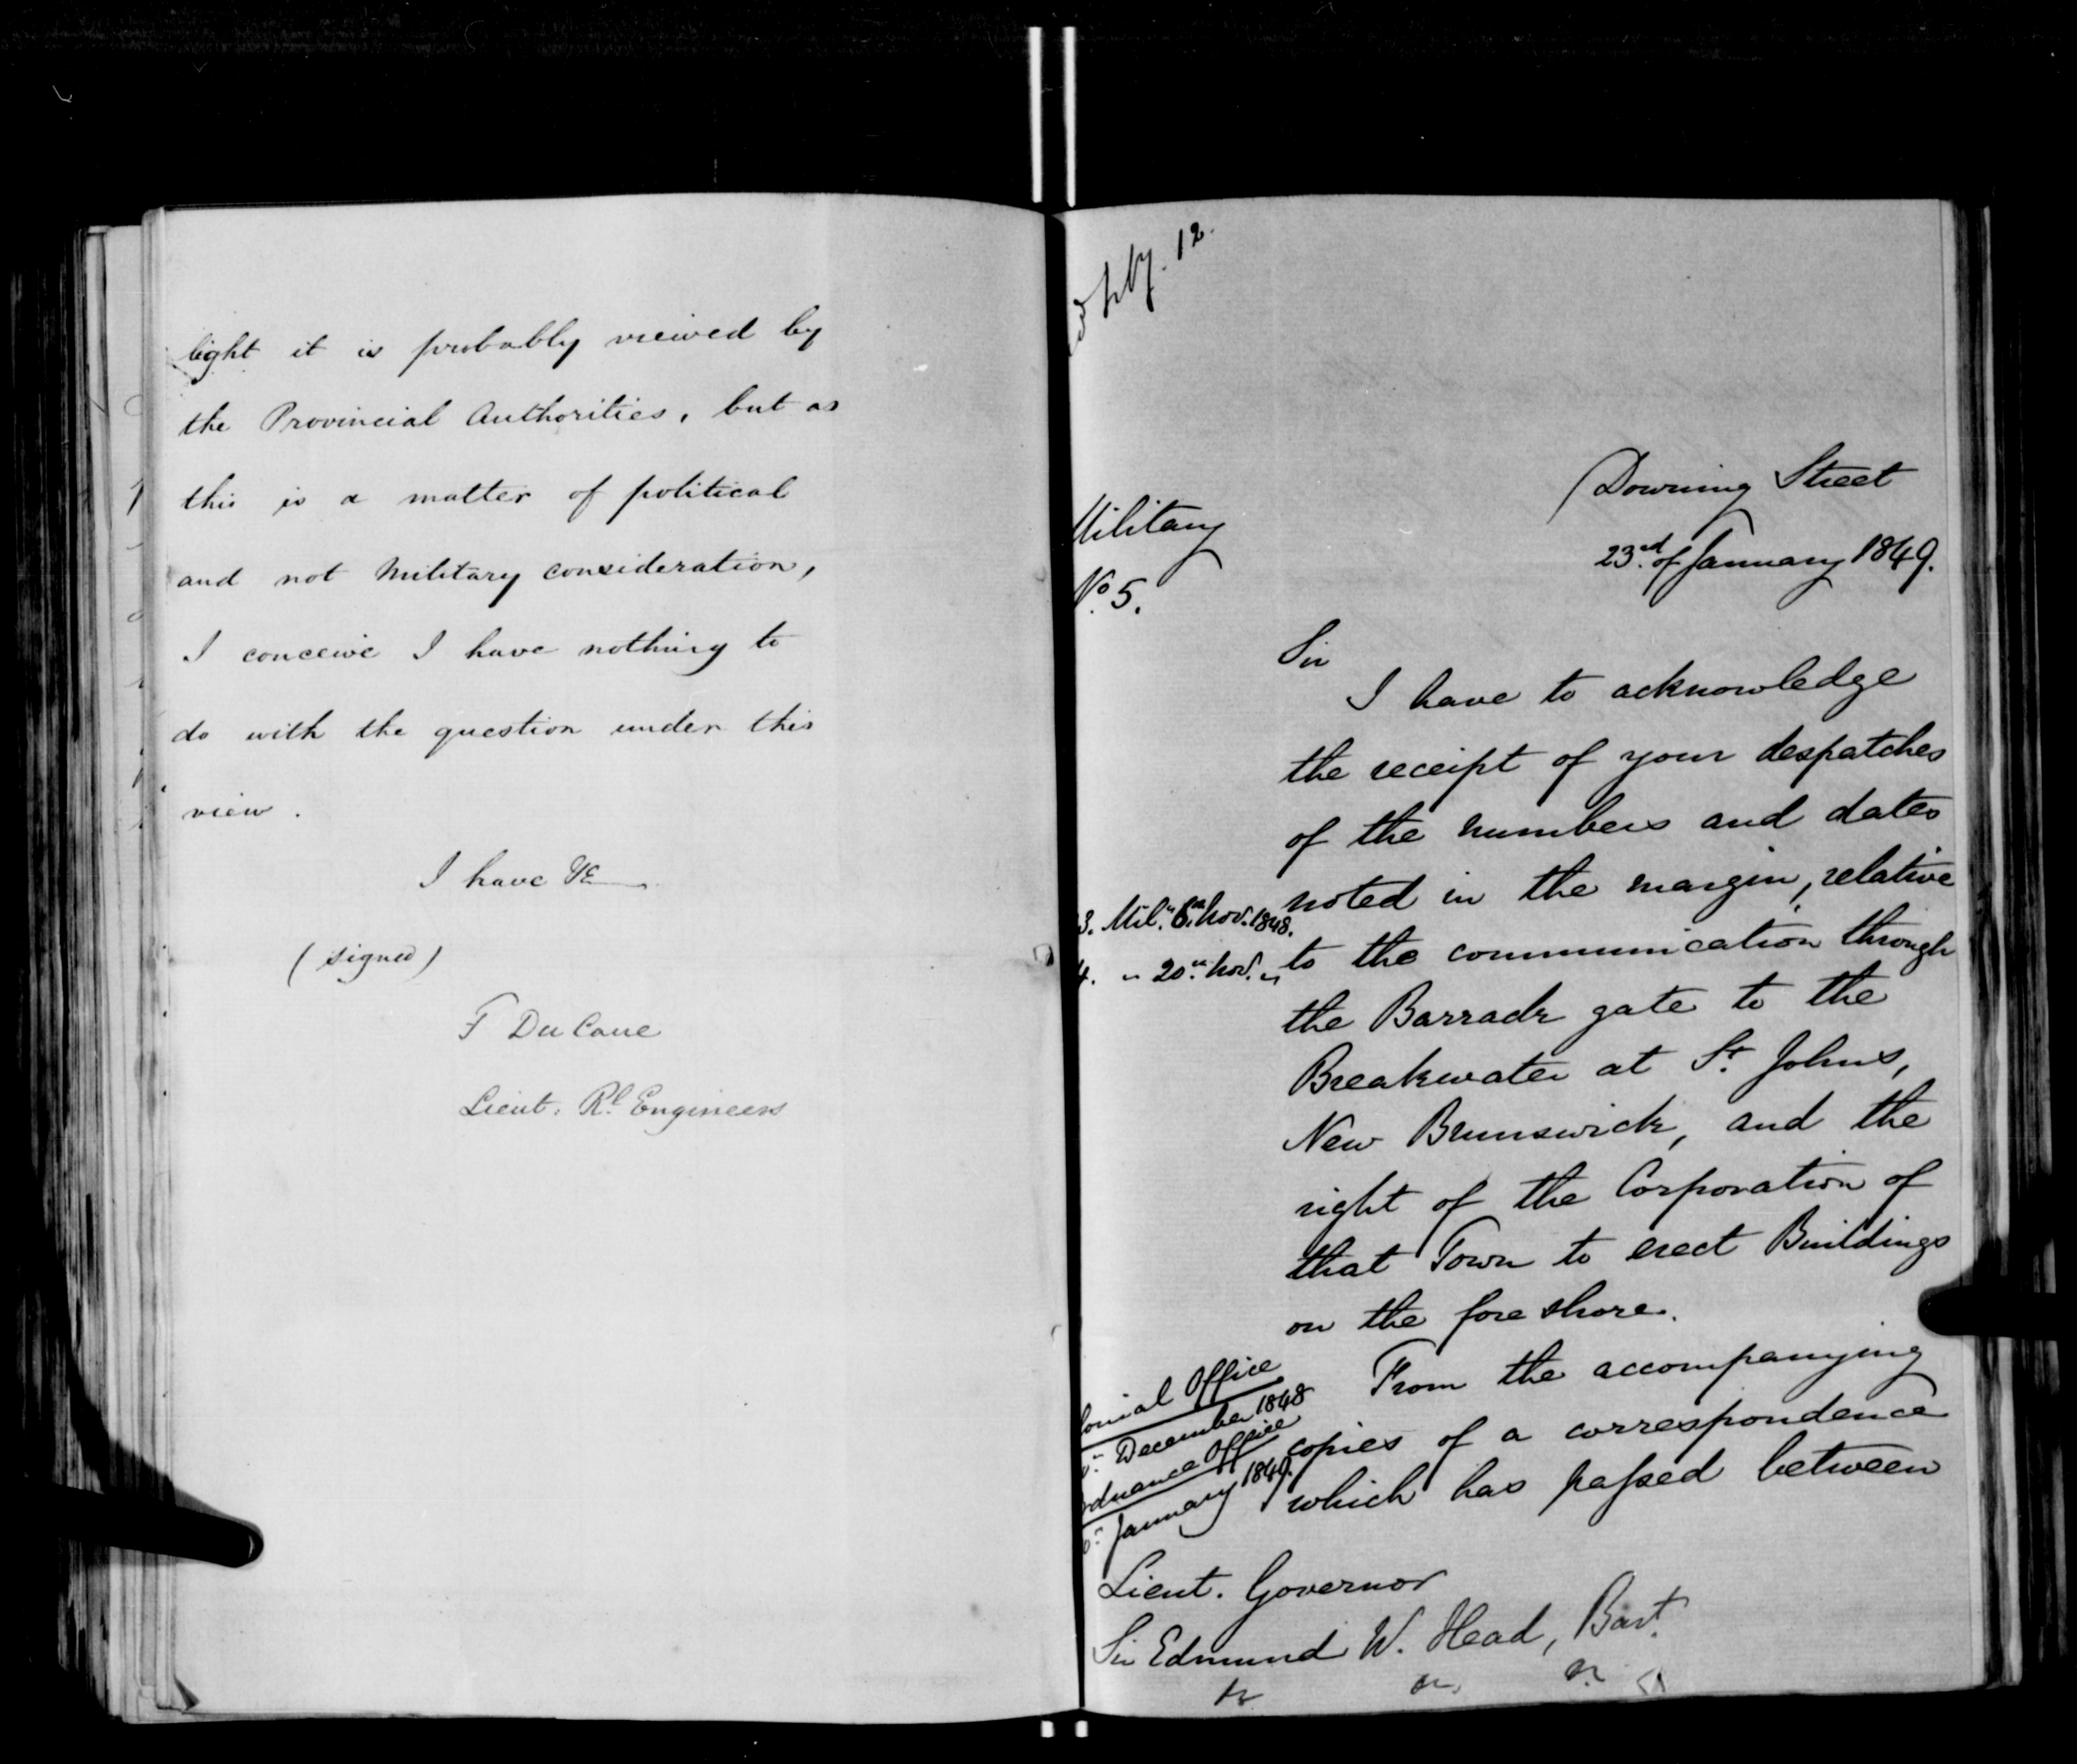 light it is probably viewed by
the Provincial Authorities, but as
this is a matter of political
and not Military consideration,
I conceive I have nothing to
do with the question under this
view.
I have &c
(signed)
F Du Cane
Lieut. Rl Engineers
12.
Military
No 5.
Downing Street
23rd of January 1849.
Sir
I have to acknowledge
the receipt of your despatches
of the numbers and dates
noted in the margin, relative
3. Mily. 6th Nov. 1848.
4. " 20th Nov. "
to the communication through
the Barrack gate to the
Breakwater at St. Johns,
New Brunswick, and the
right of the Corporation of
that Town to erect Buildings
on the fore shore.
Office
December 1848
Office
January 1849.
From the accompanying
copies of a correspondence
which has passed between
Lieut. Governor
Sir Edmund W. Head, Bart.